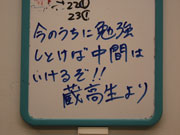 22①
23①
今のうちに勉強
しとけば中間は
いけるぞ!!
蔵高生より